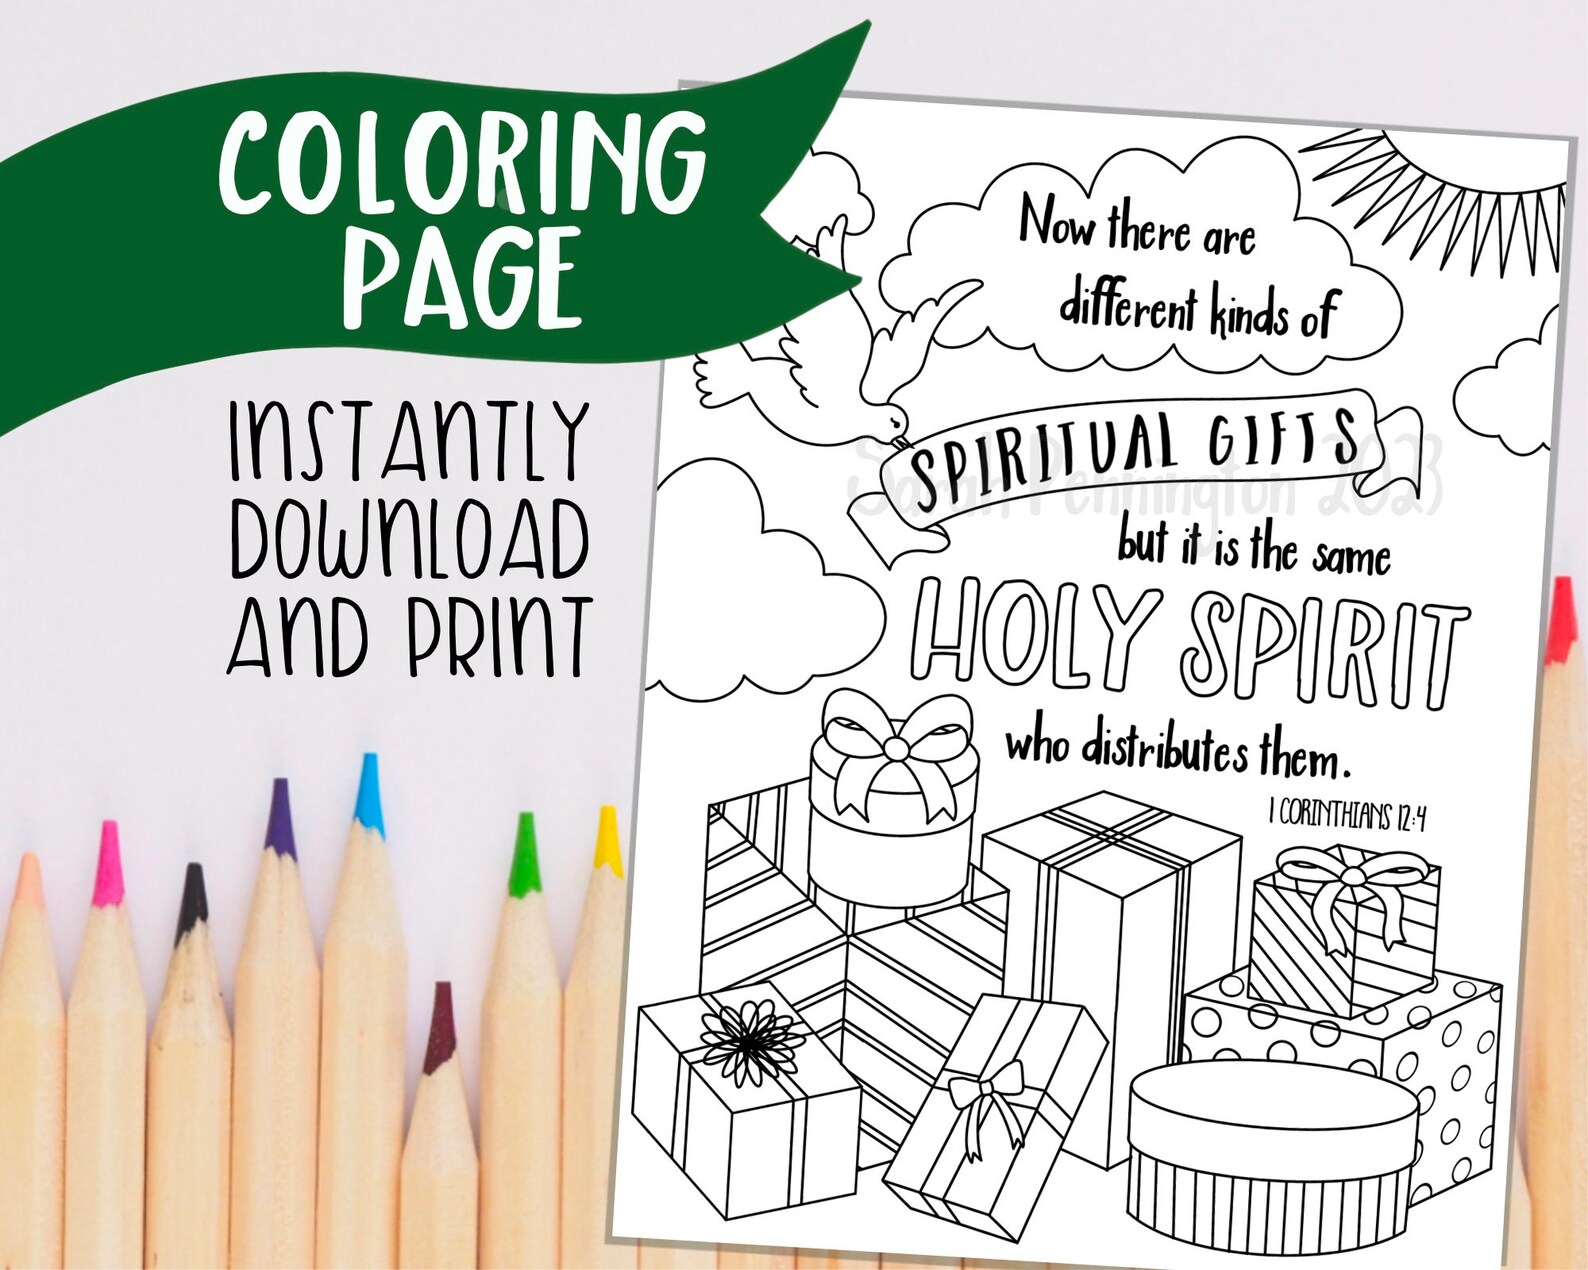 COLORING
PAGE
INSTANTLY
DOWNLOAD
AND PRINT
Now there are
different kinds of
SPIRITUAL GIFTS
Sarah Pennington 2023
but it is the same
HOLY SPIRIT
who distributes them.
1 CORINTHIANS 12:4